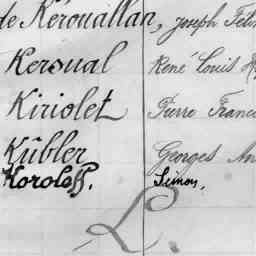 de Kérouallan, Joseph
Kersual René Louis
Kiriolet Pierre
Kûbler Georges
Koroloff. Simon.
L.